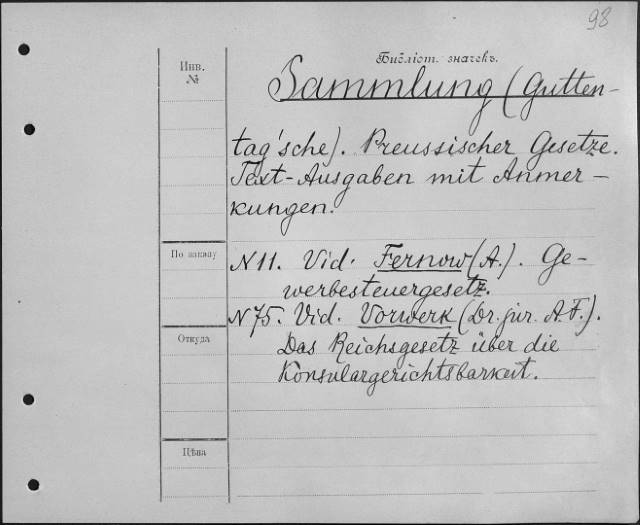 98
Инв.
№
Библіот. значекъ.
Sammlung (Gutten-
tag'sche). Preussischer Gesetze.
Text-Ausgaben mit Anmer-
kungen.
По заказу
N 11. Vid. Fernow (A.). Ge-
werbesteuergesetz.
N 75. Vid. Vorwerk (Dr. jur. A. F.).
Откуда
Das Reichsgesetz über die
Konsulargerichtsbarkeit.
Цѣна